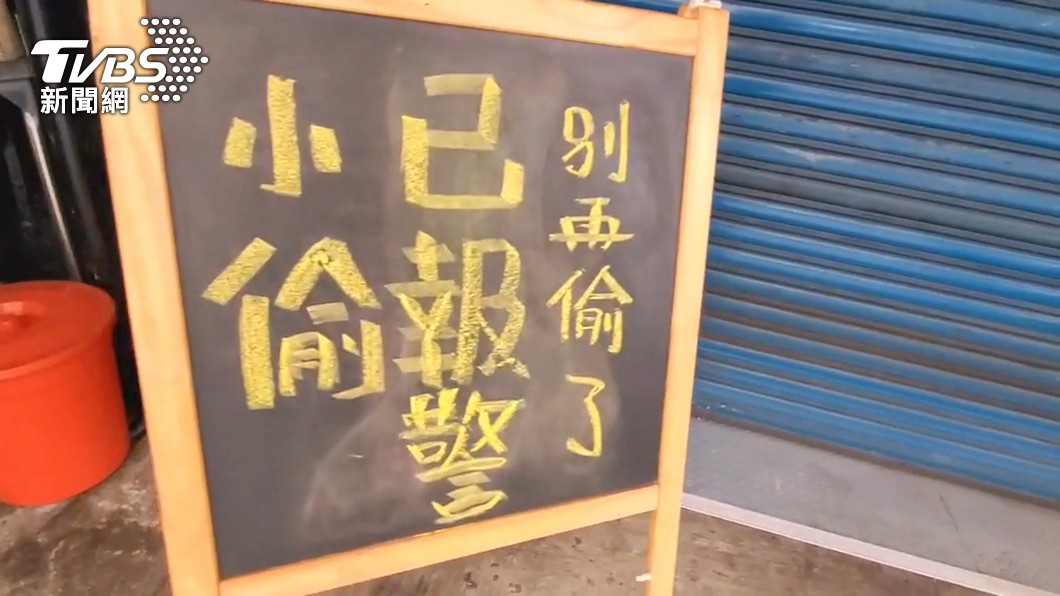 TVBS
新聞網
小偷
已報警
別再偷了